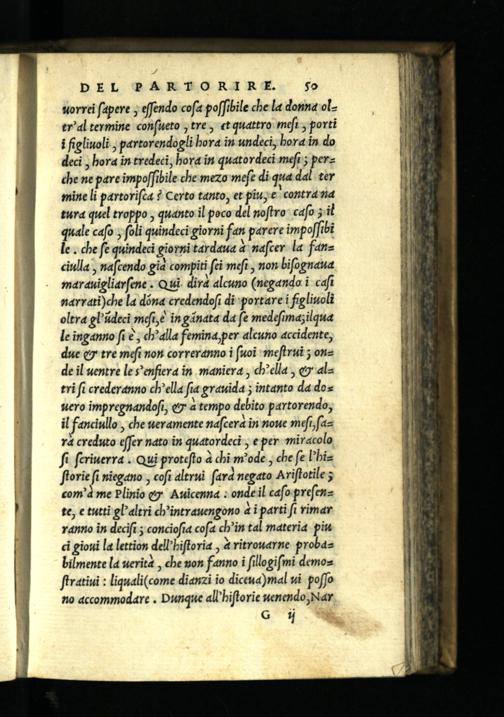 DEL PARTORIRE. 50
uorrei sapere, essendo cosa possibile che la donna ol=
tr'al termine consueto, tre, et quattro mesi, porti
i figliuoli, partorendogli hora in undeci, hora in do
deci, hora in tredeci, hora in quatordeci mesi; per=
che ne pare impossibile che mezo mese di qua dal ter
mine li partorisca? Certo tanto, et piu, e contra na
tura quel troppo, quanto il poco del nostro caso; il
quale caso, soli quindeci giorni fan parere impossibi
le. che se quindeci giorni tardaua à nascer la fan=
ciulla, nascendo già compiti sei mesi, non bisognaua
marauigliarsene. Qui dirà alcuno (negando i casi
narrati) che la dóna credendosi di portare i figliuoli
oltra gl'ūdeci mesi, è ingānata da se medesima; ilqua
le inganno si è, ch'alla femina, per alcuno accidente,
due & tre mesi non correranno i suoi mestrui; on=
de il uentre le s'enfiera in maniera, ch'ella, & al=
tri si crederanno ch'ella sia grauida; intanto da do=
uero impregnandosi, & à tempo debito partorendo,
il fanciullo, che ueramente nascerà in noue mesi, sa=
rà creduto esser nato in quatordeci, e per miracolo
si scriuerra. Qui protesto à chi m'ode, che se l'hi=
storie si niegano, cosi altrui sarà negato Aristotile;
com'à me Plinio & Auicenna: onde il caso presen=
te, e tutti gl'altri ch'intrauengono à i parti si rimar
ranno in decisi; conciosia cosa ch'in tal materia piu
ci gioui la lettion dell'historia, à ritrouarne proba=
bilmente la uerità, che non fanno i sillogismi demo=
stratiui: liquali (come dianzi io diceua) mal ui posso
no accommodare. Dunque all'historie uenendo, Nar
G ij